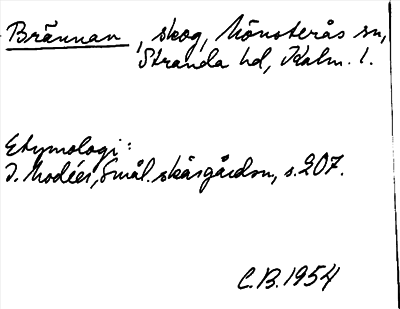 Brännan, skog, Mönsterås sn,
Stranda hd, Kalm. l.
Etymologi:
I. Modéer, Smål. skärgårdsn, s. 207.
C.B. 1954